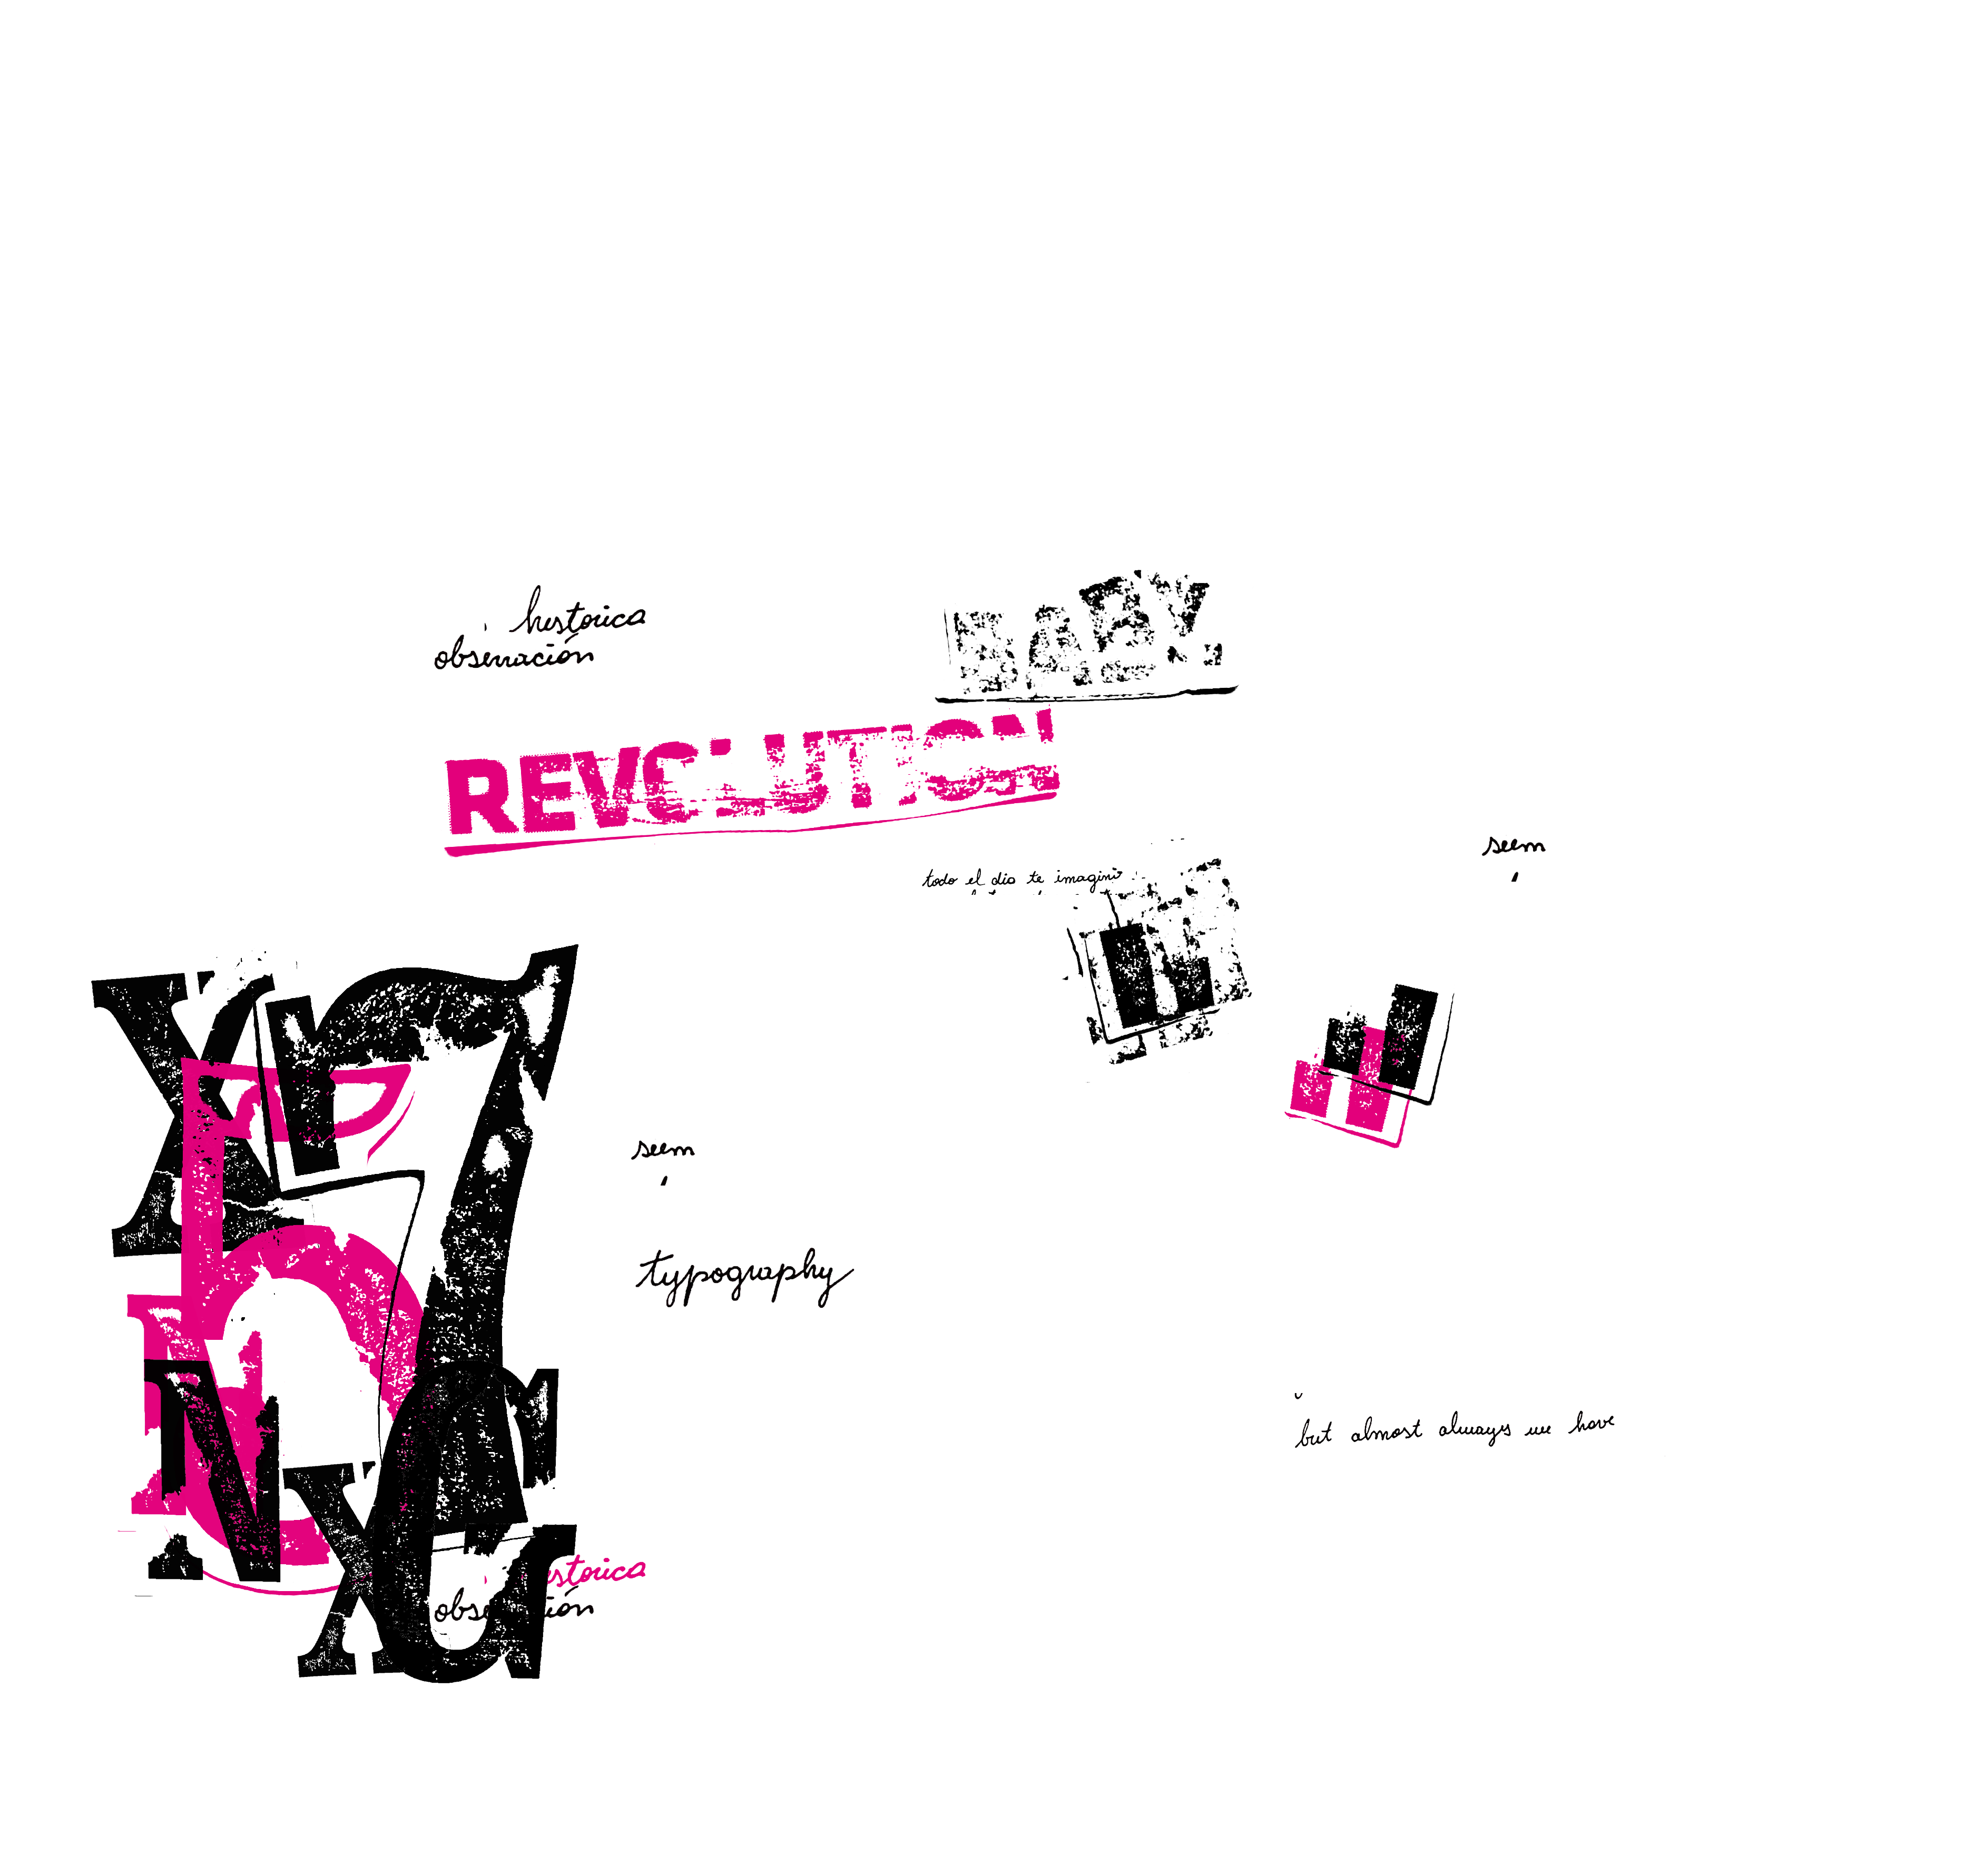 historica
observación
BABY.
REVOLUTION
todo el dia te imagin
seem
X
r
7
5
seem
typography
N
N
but almost always we have
X
G
historica
observación